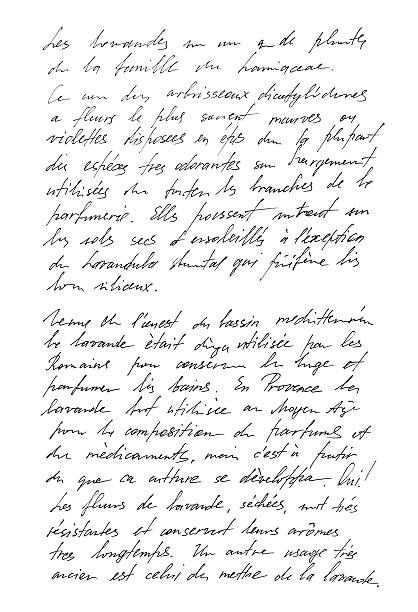 Les lavandes sont un g de plantes
de la famille du Lamiaceae.
Ce sont des arbrisseaux dicotylédones
a fleurs le plus souvent mauves ou
violettes disposées en épis dont la plupart
des espèces tres odorantes sont largement
utilisées dans toutes les branches de la
parfumerie. Elles poussent surtout sur
les sols secs et ensoleillés à l'exception
du Lavandula qui préfère les
siliceux.
Venue de l'ouest du bassin mediterranéen
la lavande était utilisée par les
Romains pour conserver le linge et
parfumer les bains. En Provence la
lavande fut utilisée au Moyen Age
pour la composition du parfums et
du mèdicaments, mais c'est à partir
du que sa culture se développa.
Les fleurs de lavande, séchées, sont très
résistantes et conservent leurs arômes
tres longtemps. Un autre usage très
ancien est celui de mettre de la lavande.